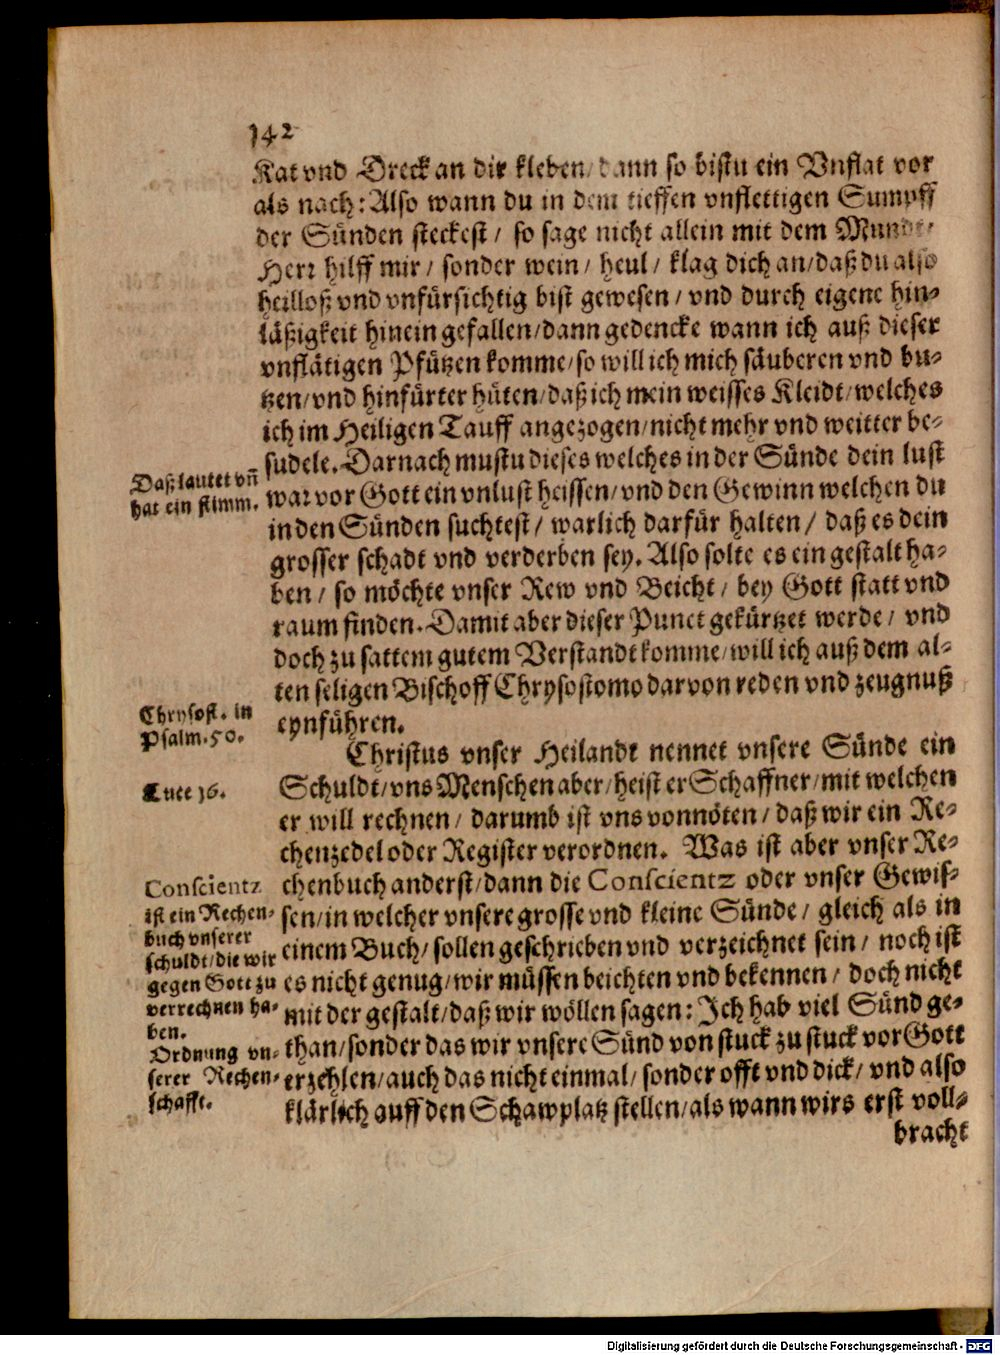 142
Kat vnd Dreck an dir kleben/ dann so bistu ein Vnflat vor
als nach: Also wann du in dem tieffen vnflettigen Sumpff
der Sünden steckest/ so sage nicht allein mit dem Mundt/
Herr hilff mir/ sonder wein/ heul/ klag dich an/ daß du also
heilloß vnd vnfürsichtig bist gewesen/ vnd durch eigene hin-
läßigkeit hinein gefallen/ dann gedencke wann ich auß dieser
vnflätigen Pfützen komme/ so will ich mich säuberen vnd bu-
tzen/ vnd hinfürter hüten/ daß ich mein weisses Kleidt/ welches
ich im Heiligen Tauff angezogen/ nicht mehr vnd weitter be-
sudele. Darnach mustu dieses welches in der Sünde dein lust
Daß lautet vñ
hat ein stimm.
war vor Gott ein vnlust heissen/ vnd den Gewinn welchen du
in den Sünden suchtest/ warlich darfür halten/ daß es dein
grosser schadt vnd verderben sey. Also solte es ein gestalt ha-
ben/ so möchte vnser Rew vnd Beicht/ bey Gott statt vnd
raum finden. Damit aber dieser Punct gekürtzet werde/ vnd
doch zu sattem gutem Verstandt komme/ will ich auß dem al-
ten seligen Bischoff Chrysostomo darvon reden vnd zeugnuß
Chrysost. in
Psalm. 50.
eynführen.
Christus vnser Heilandt nennet vnsere Sünde ein
Lucę 16.
Schuldt/ vns Menschen aber/ heist er Schaffner/ mit welchen
er will rechnen/ darumb ist vns vonnöten/ daß wir ein Re-
chenzedel oder Register verordnen. Was ist aber vnser Re-
Conscientz
ist ein Rechen-
buch vnserer
schuldt/ die wir
gegen Gott zu
verrechnen ha-
ben.
Ordnung vn-
serer Rechen-
schafft.
chenbuch anderst/ dann die Conscientz oder vnser Gewis-
sen/ in welcher vnsere grosse vnd kleine Sünde/ gleich als in
einem Buch/ sollen geschrieben vnd verzeichnet sein/ noch ist
es nicht genug/ wir müssen beichten vnd bekennen/ doch nicht
mit der gestalt/ daß wir wöllen sagen: Ich hab viel Sünd ge-
than/ sonder das wir vnsere Sünd von stuck zu stuck vor Gott
erzehlen/ auch das nicht einmal/ sonder offt vnd dick/ vnd also
klärlich auff den Schawplatz stellen/ als wann wirs erst voll-
bracht
Digitalisierung gefördert durch die Deutsche Forschungsgemeinschaft - DFG